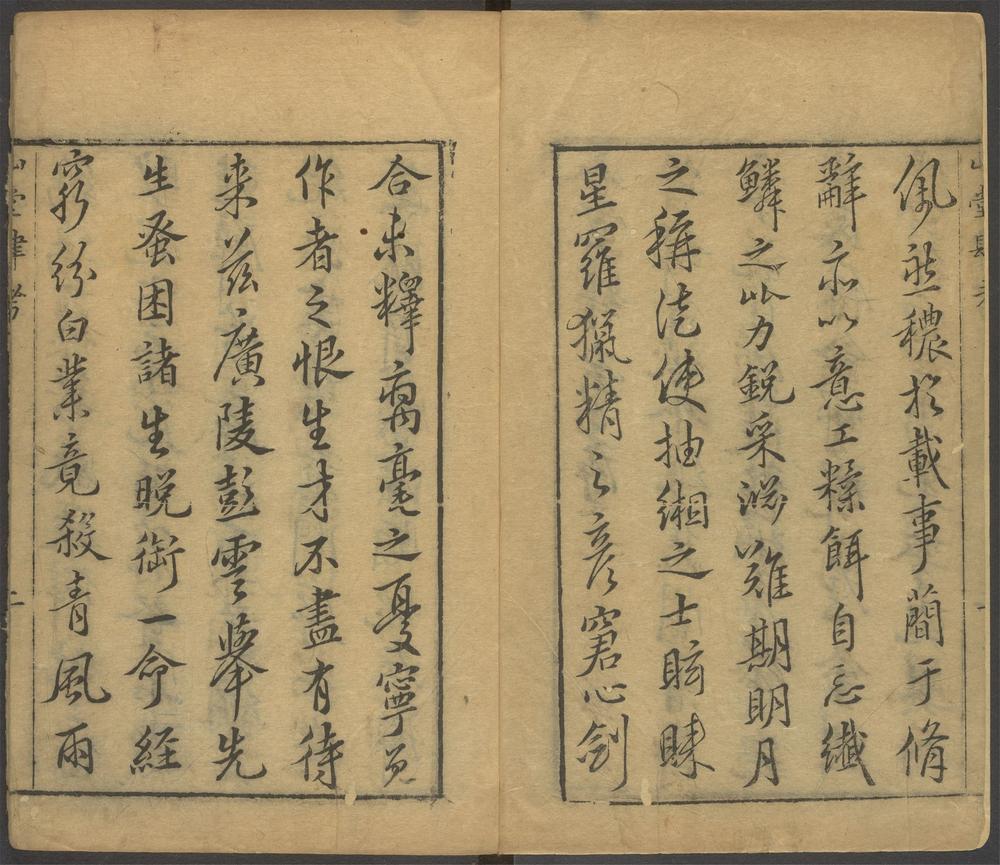 佩茲穠於載事簡于脩
辭亦以意工糅餌自忘纖
鱗之此力銳采遊難期明月
之稱徒使抽緗之士眩睐
星羅獵精之彥窘心劍
合未釋腐毫之憂寧免
作者之恨生才不盡有待
来茲廣陵彭雲舉先
生蚤困諸生晚銜一命經
窮紛白業竟殺青風雨
山堂肆考
一
山堂肆考
二